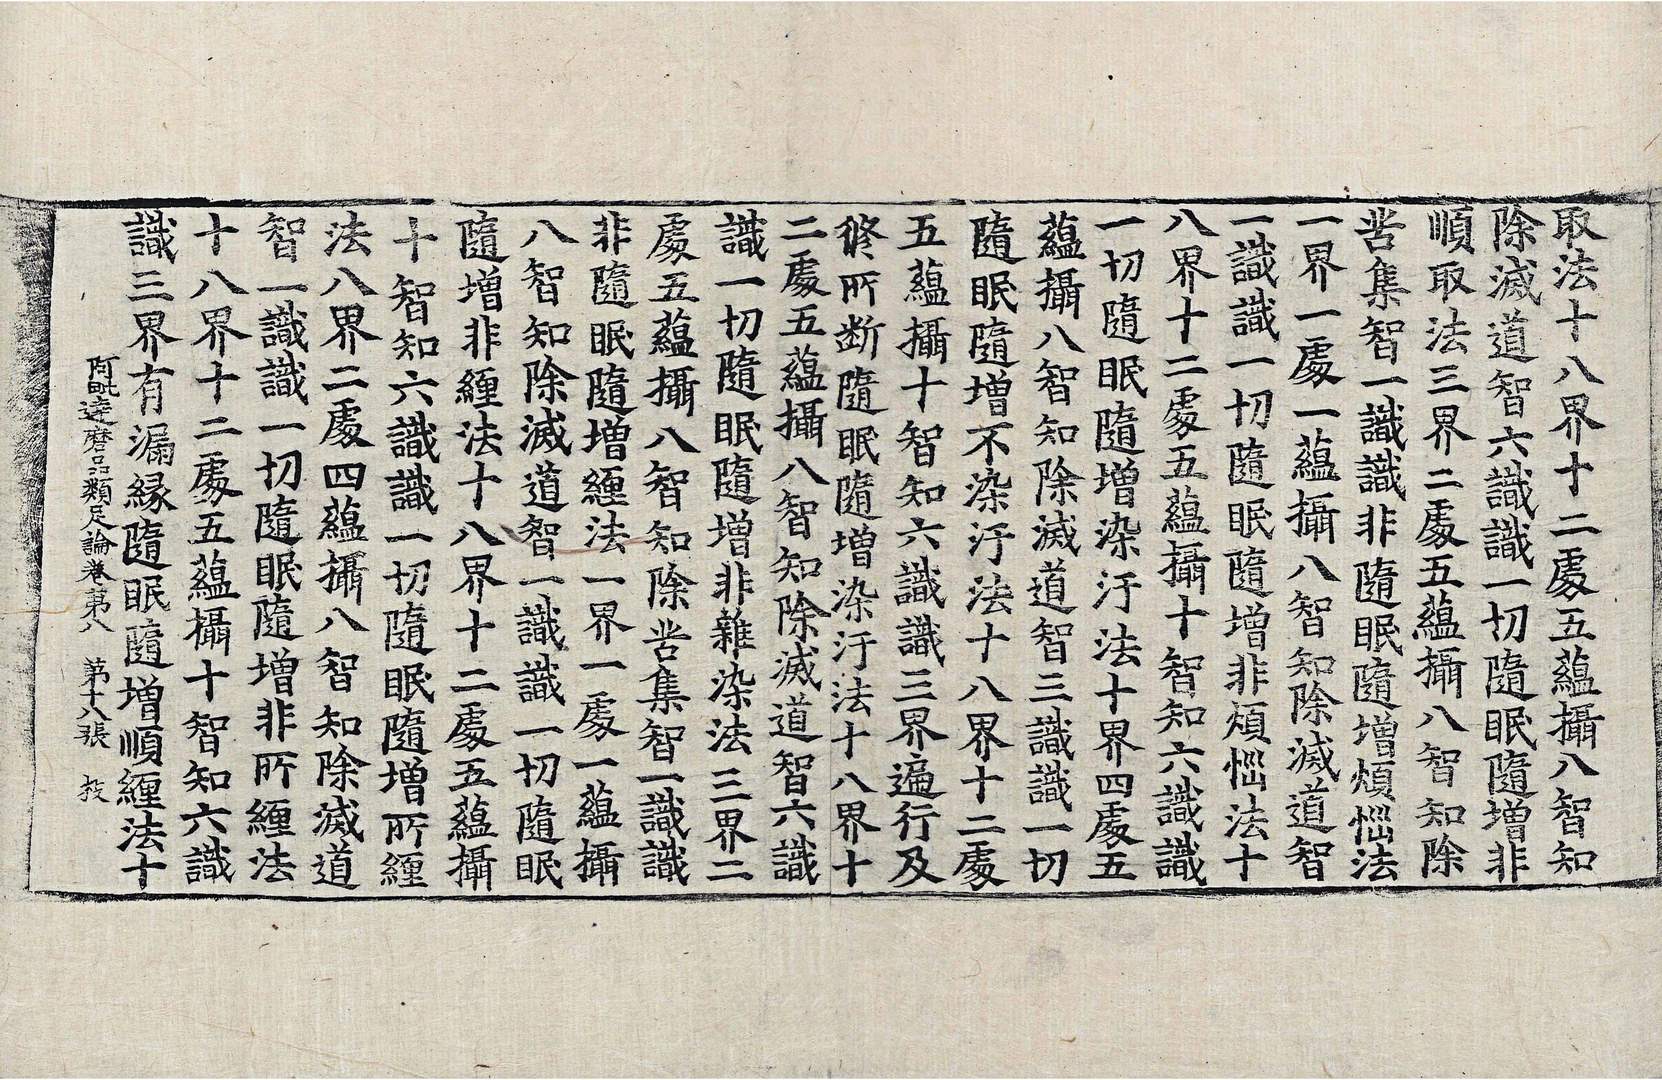 取法十八界十二處五蘊攝八智知
除滅道智六識識一切隨眠隨增非
順取法三界二處五蘊攝八智知除
苦集智一識識非隨眠隨增煩惱法
一界一處一蘊攝八智知除滅道智
一識識一切隨眠隨增非煩惱法十
八界十二處五蘊攝十智知六識識
一切隨眠隨增染汙法十界四處五
蘊攝八智知除滅道智三識識一切
隨眠隨增不染汙法十八界十二處
五蘊攝十智知六識識三界遍行及
修所斷隨眠隨增染汙法十八界十
二處五蘊攝八智知除滅道智六識
識一切隨眠隨增非雜染法三界二
處五蘊攝八智知除苦集智一識識
非隨眠隨增纏法一界一處一蘊攝
八智知除滅道智一識識一切隨眠
隨增非纏法十八界十二處五蘊攝
十智知六識識一切隨眠隨增所纏
法八界二處四蘊攝八智知除滅道
智一識識一切隨眠隨增非所纏法
十八界十二處五蘊攝十智知六識
識三界有漏緣隨眠隨增順纏法十
阿毗達磨品類足論卷第八 第十八張 投